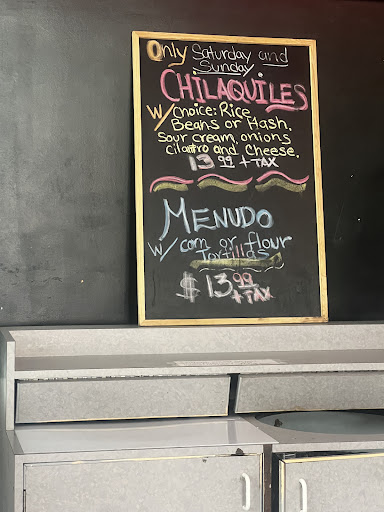 Only Saturday and
Sunday
CHILAQUILES
W/ Choice: Rice
Beans or Hash.
Sour cream, onions
cilantro and Cheese.
13.99 + TAX
MENUDO
W/ corn or flour
Tortillas
$13.99
+ TAX